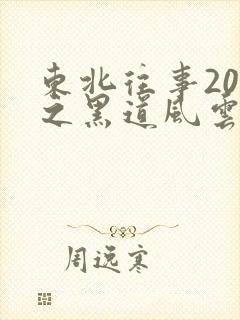 東北往事20
之黑道風雲
周逸寒